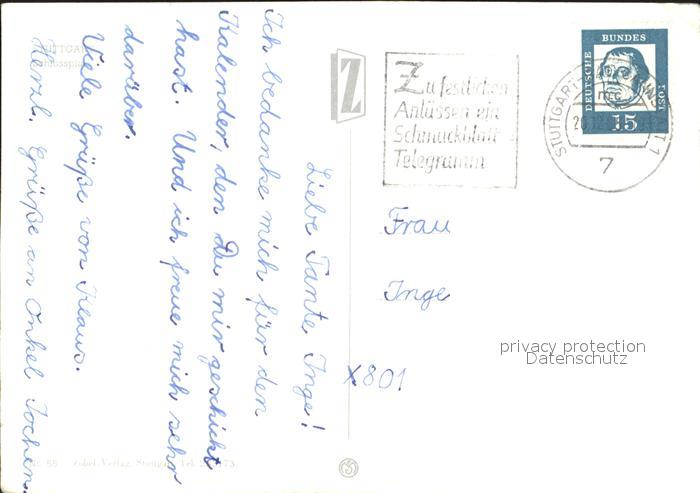 Liebe Tante Inge!
Ich bedanke mich für den
Kalender, den Du mir geschickt
hast. Und ich freue mich sehr
darüber.
Viele Grüße von Klaus.
Herzl. Grüße an Onkel Jochen.
STUTTGART
Schlossplatz
Z
Zu festlichen
Anlässen ein
Schmuckblatt-
Telegramm
DEUTSCHE
BUNDES
POST
15
STUTTGART
7
Frau
Inge
X801
privacy protection
Datenschutz